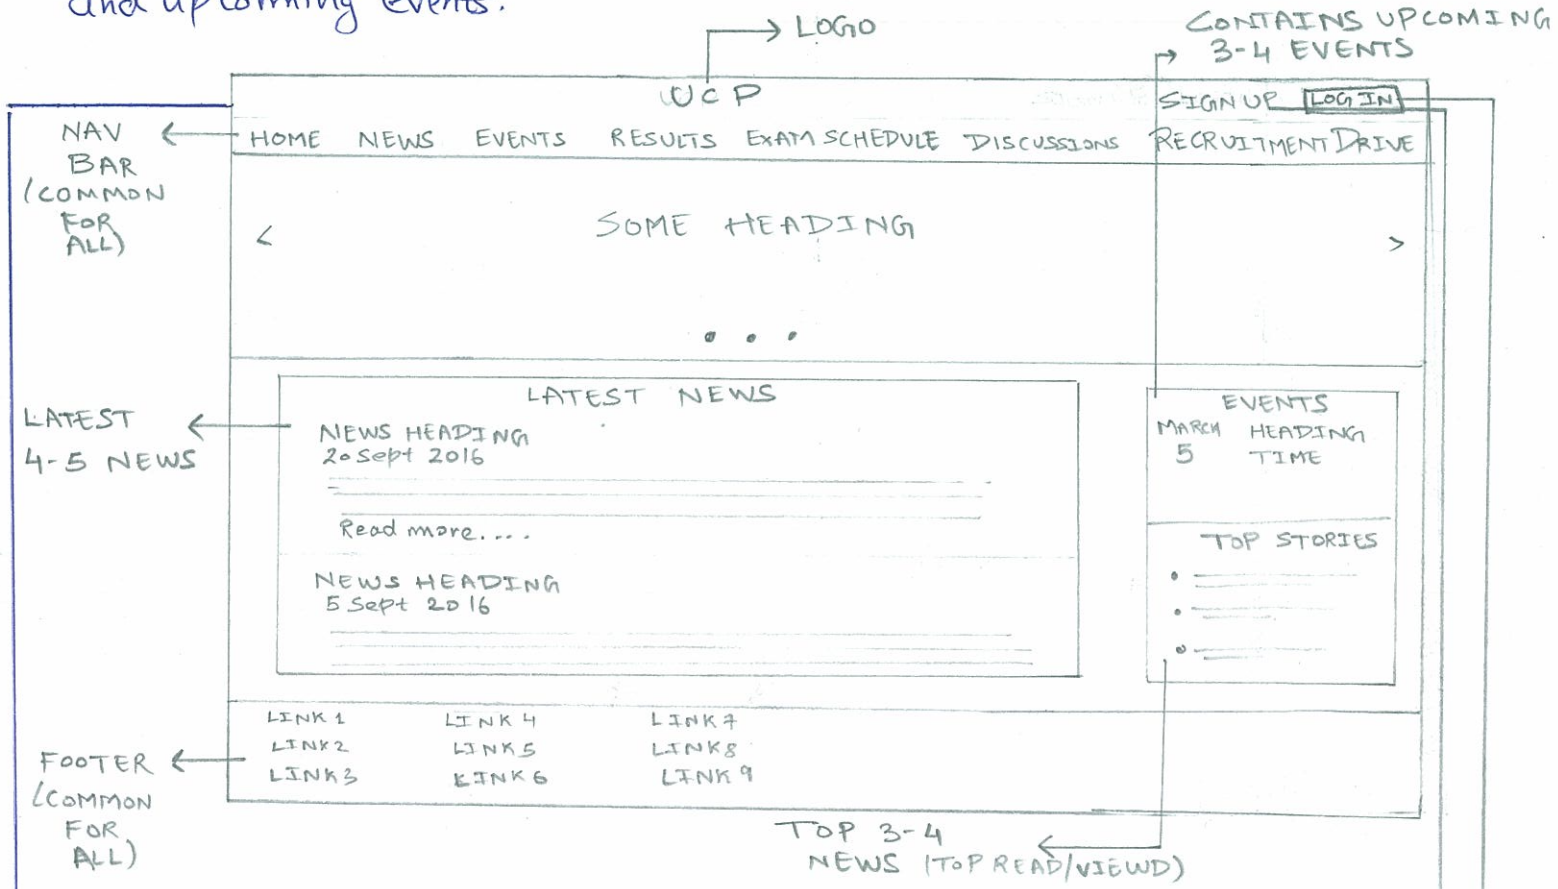 and upcoming events.
LOGO
CONTAINS UPCOMING
3-4 EVENTS
UCP
SIGN UP LOG IN
NAV
BAR
(COMMON
FOR
ALL)
HOME NEWS EVENTS RESULTS EXAM SCHEDULE DISCUSSIONS RECRUITMENT DRIVE
< SOME HEADING >
LATEST
4-5 NEWS
LATEST NEWS
NEWS HEADING
20 Sept 2016
Read more....
NEWS HEADING
5 Sept 2016
EVENTS
MARCH HEADING
5 TIME
TOP STORIES
FOOTER
(COMMON
FOR
ALL)
LINK 1 LINK 4 LINK 7
LINK 2 LINK 5 LINK 8
LINK 3 LINK 6 LINK 9
TOP 3-4
NEWS (TOP READ/VIEWD)